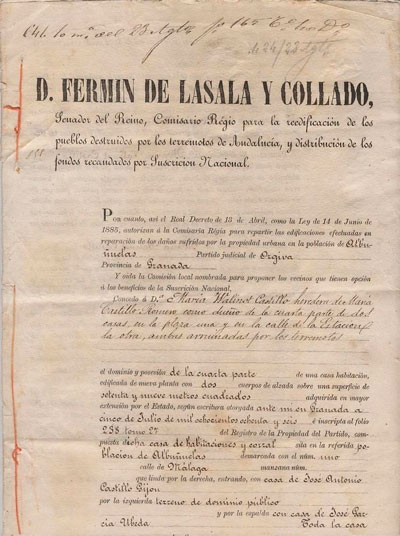 del 23 Agto
D. FERMIN DE LASALA Y COLLADO,
Senador del Reino, Comisario Régio para la reedificación de los
pueblos destruidos por los terremotos de Andalucía, y distribución de los
fondos recaudados por Suscrición Nacional,
Por cuanto, así el Real Decreto de 13 de Abril, como la Ley de 14 de Junio de
1885, autorizan á la Comisaría Régia para repartir las edificaciones efectuadas en
reparación de los daños sufridos por la propiedad urbana en la población de Albu-
ñuelas Partido judicial de Orgiva
Provincia de Granada
Y oida la Comisión local nombrada para proponer los vecinos que tienen opción
á los beneficios de la Suscrición Nacional.
Concedo á D.ª María Castillo heredera de María
Castillo Romero como dueño de la cuarta parte de dos
casas, en la plaza una y en la calle de la Estacion
la otra, ambas arruinadas por los terremotos
el dominio y posesión de la cuarta parte de una casa habitación,
edificada de nueva planta con dos cuerpos de alzada sobre una superficie de
setenta y nueve metros cuadrados adquirida en mayor
extensión por el Estado, según escritura otorgada ante mi en Granada a
cinco de Julio de mil ochocientos ochenta y seis é inscripta al folio
238 tomo 27 del Registro de la Propiedad del Partido, com-
puesta dicha casa de habitaciones y corral sita en la referida po-
blacion de Albuñuelas demarcada con el núm. uno
calle de Málaga manzana núm.
que linda por la derecha, entrando, con casa de José Antonio
Castillo Gijon
por la izquierda terreno de dominio público
y por la espalda con casa de José Gar-
cia Ubeda Toda la casa